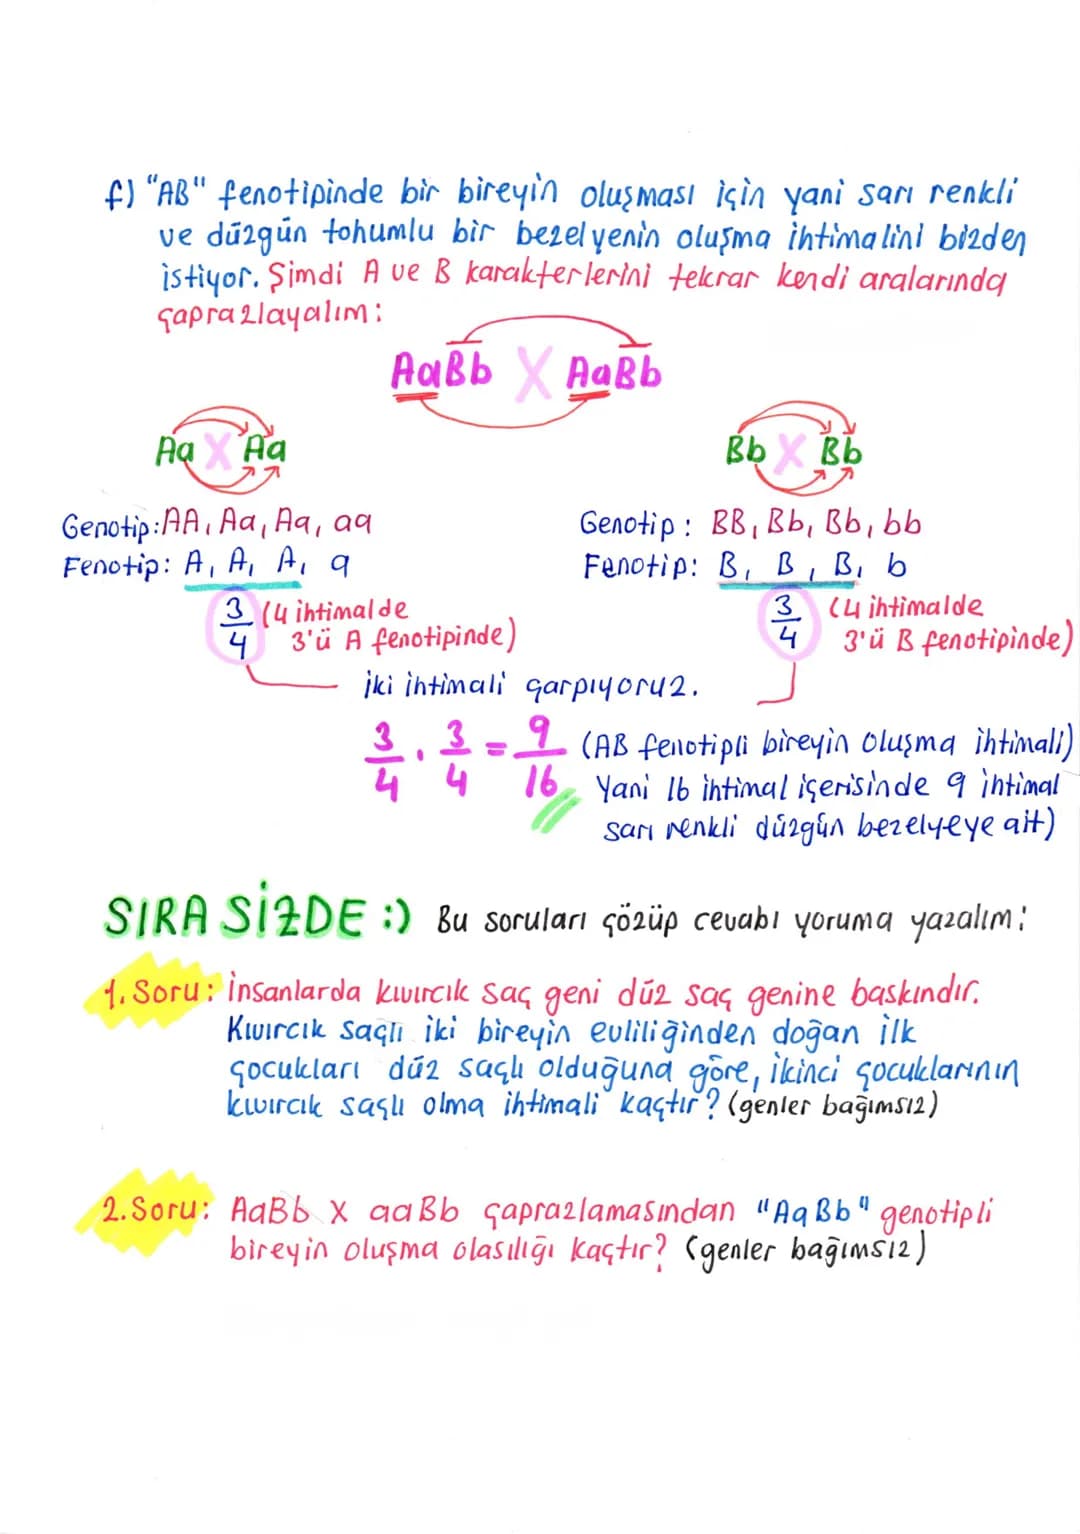 f) "AB" fenotipinde bir bireyin oluşması için yani sarı renkli
ve düzgün tohumlu bir bezelyenin oluşma ihtimalini bizden
istiyor. Şimdi A ve B karakterlerini tekrar kendi aralarında
çaprazlayalım:
AaBb X AaBb
Aa X Aa
Bb X Bb
Genotip: AA, Aa, Aa, aa
Fenotip: A, A, A, a
3/4 (4 ihtimalde
3'ü A fenotipinde)
Genotip: BB, Bb, Bb, bb
Fenotip: B, B, B, b
3/4 (4 ihtimalde
3'ü B fenotipinde)
iki ihtimali çarpıyoruz.
3/4 . 3/4 = 9/16 (AB fenotipli bireyin oluşma ihtimali)
Yani 16 ihtimal içerisinde 9 ihtimal
sarı renkli düzgün bezelyeye ait)
SIRA SİZDE :) Bu soruları çözüp cevabı yoruma yazalım:
1. Soru: İnsanlarda kıvırcık saç geni düz saç genine baskındır.
Kıvırcık saçlı iki bireyin evliliğinden doğan ilk
çocukları düz saçlı olduğuna göre, ikinci çocuklarının
kıvırcık saçlı olma ihtimali kaçtır? (genler bağımsız)
2. Soru: AaBb X aaBb çaprazlamasından "AaBb" genotipli
bireyin oluşma olasılığı kaçtır? (genler bağımsız)